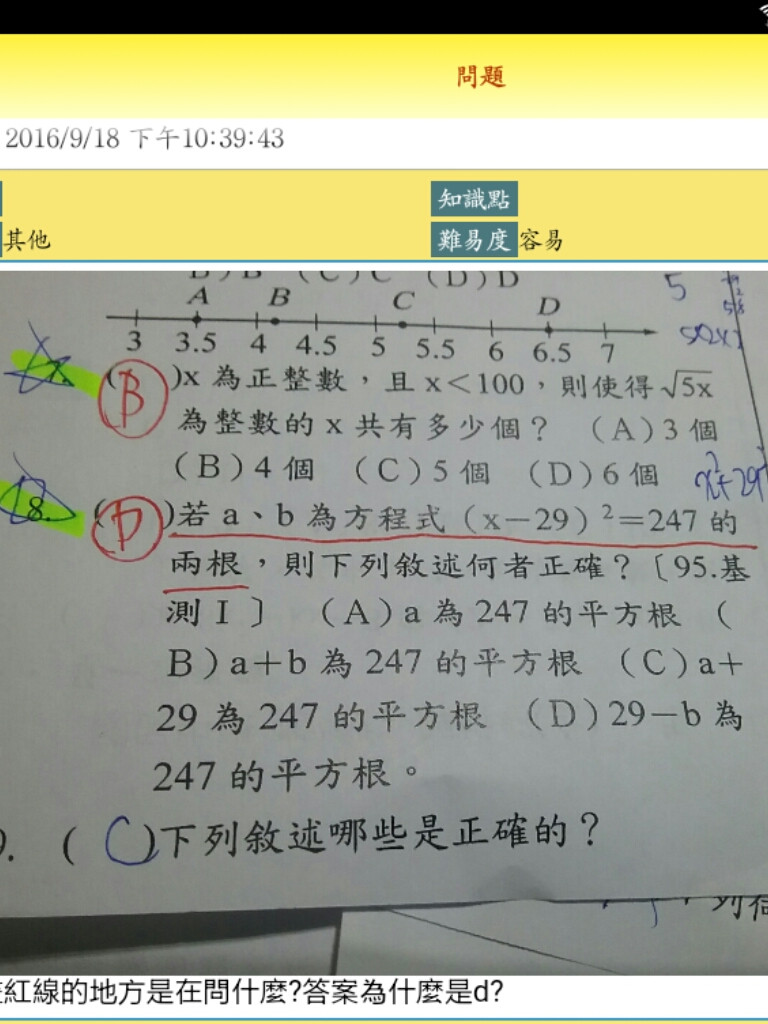 問題
2016/9/18 下午10:39:43
知識點
其他
難易度 容易
B)B (C)C (D)D
A B C D
3 3.5 4 4.5 5 5.5 6 6.5 7
7. (B)x 為正整數，且 x<100，則使得√5x
為整數的 x 共有多少個？ (A)3 個
(B)4 個 (C)5 個 (D)6 個
8. (D)若 a、b 為方程式(x－29)²=247 的
兩根，則下列敘述何者正確？〔95.基
測Ⅰ〕 (A)a 為 247 的平方根 (
B)a＋b 為 247 的平方根 (C)a＋
29 為 247 的平方根 (D)29－b 為
247 的平方根。
( C )下列敘述哪些是正確的？
紅線的地方是在問什麼?答案為什麼是d?